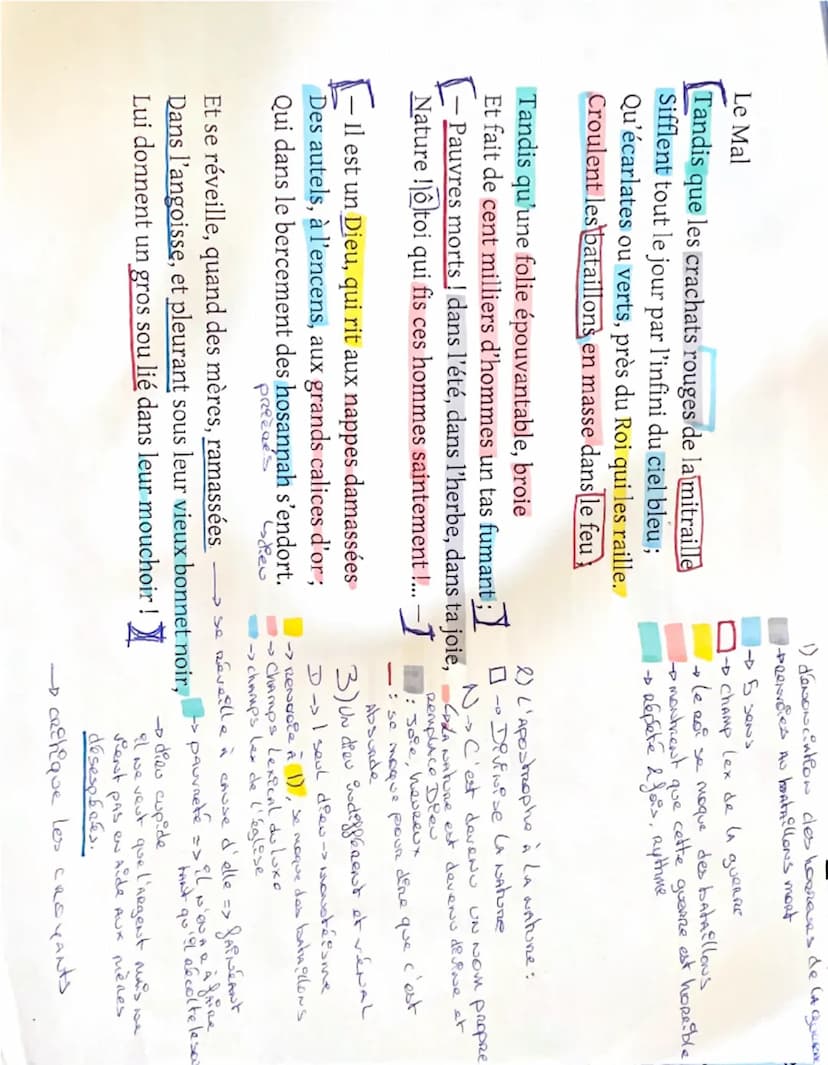 Le Mal
Tandis que les crachats rouges de la mitraille
Sifflent tout le jour par l'infini du ciel bleu ;
Qu'écarlates ou verts, près du Roi qui les raille,
Croulent les bataillons en masse dans le feu ;
Tandis qu'une folie épouvantable, broie
Et fait de cent milliers d'hommes un tas fumant ;
– Pauvres morts ! dans l'été, dans l'herbe, dans ta joie,
Nature ! ô toi qui fis ces hommes saintement !... –
– Il est un Dieu, qui rit aux nappes damassées
Des autels, à l'encens, aux grands calices d'or ;
Qui dans le bercement des hosannah s'endort,
prières
↳ dieu
Et se réveille, quand des mères, ramassées
Dans l'angoisse, et pleurant sous leur vieux bonnet noir,
Lui donnent un gros sou lié dans leur mouchoir !
1) dénonciation des horreurs de la guerre
→ renvoies au bataillons mort
→ 5 sens
→ champ lex de la guerre
→ le roi se moque des bataillons
→ montrent que cette guerre est horrible
→ répété 2 fois, rythme
2) L'apostrophe à la nature :
→ Divinise la nature
N → C'est devenu un nom propre
La nature est devenu divine et
remplace Dieu
: joie, heureux
: se moque pour dire que c'est
absurde
3) Un dieu indifférent et vénal
D → 1 seul dieu → monothéisme
→ renvoie à 1), se moque des bataillons
→ champs lexical du luxe
→ champs lex de l'église
→ se réveille à cause d'elle => fainéant
→ pauvreté => il n'en a à faire
tant qu'il récolte le sou
→ dieu cupide
il ne veut que l'argent mais ne
vient pas en aide aux mères
désespérées.
→ critique les croyants